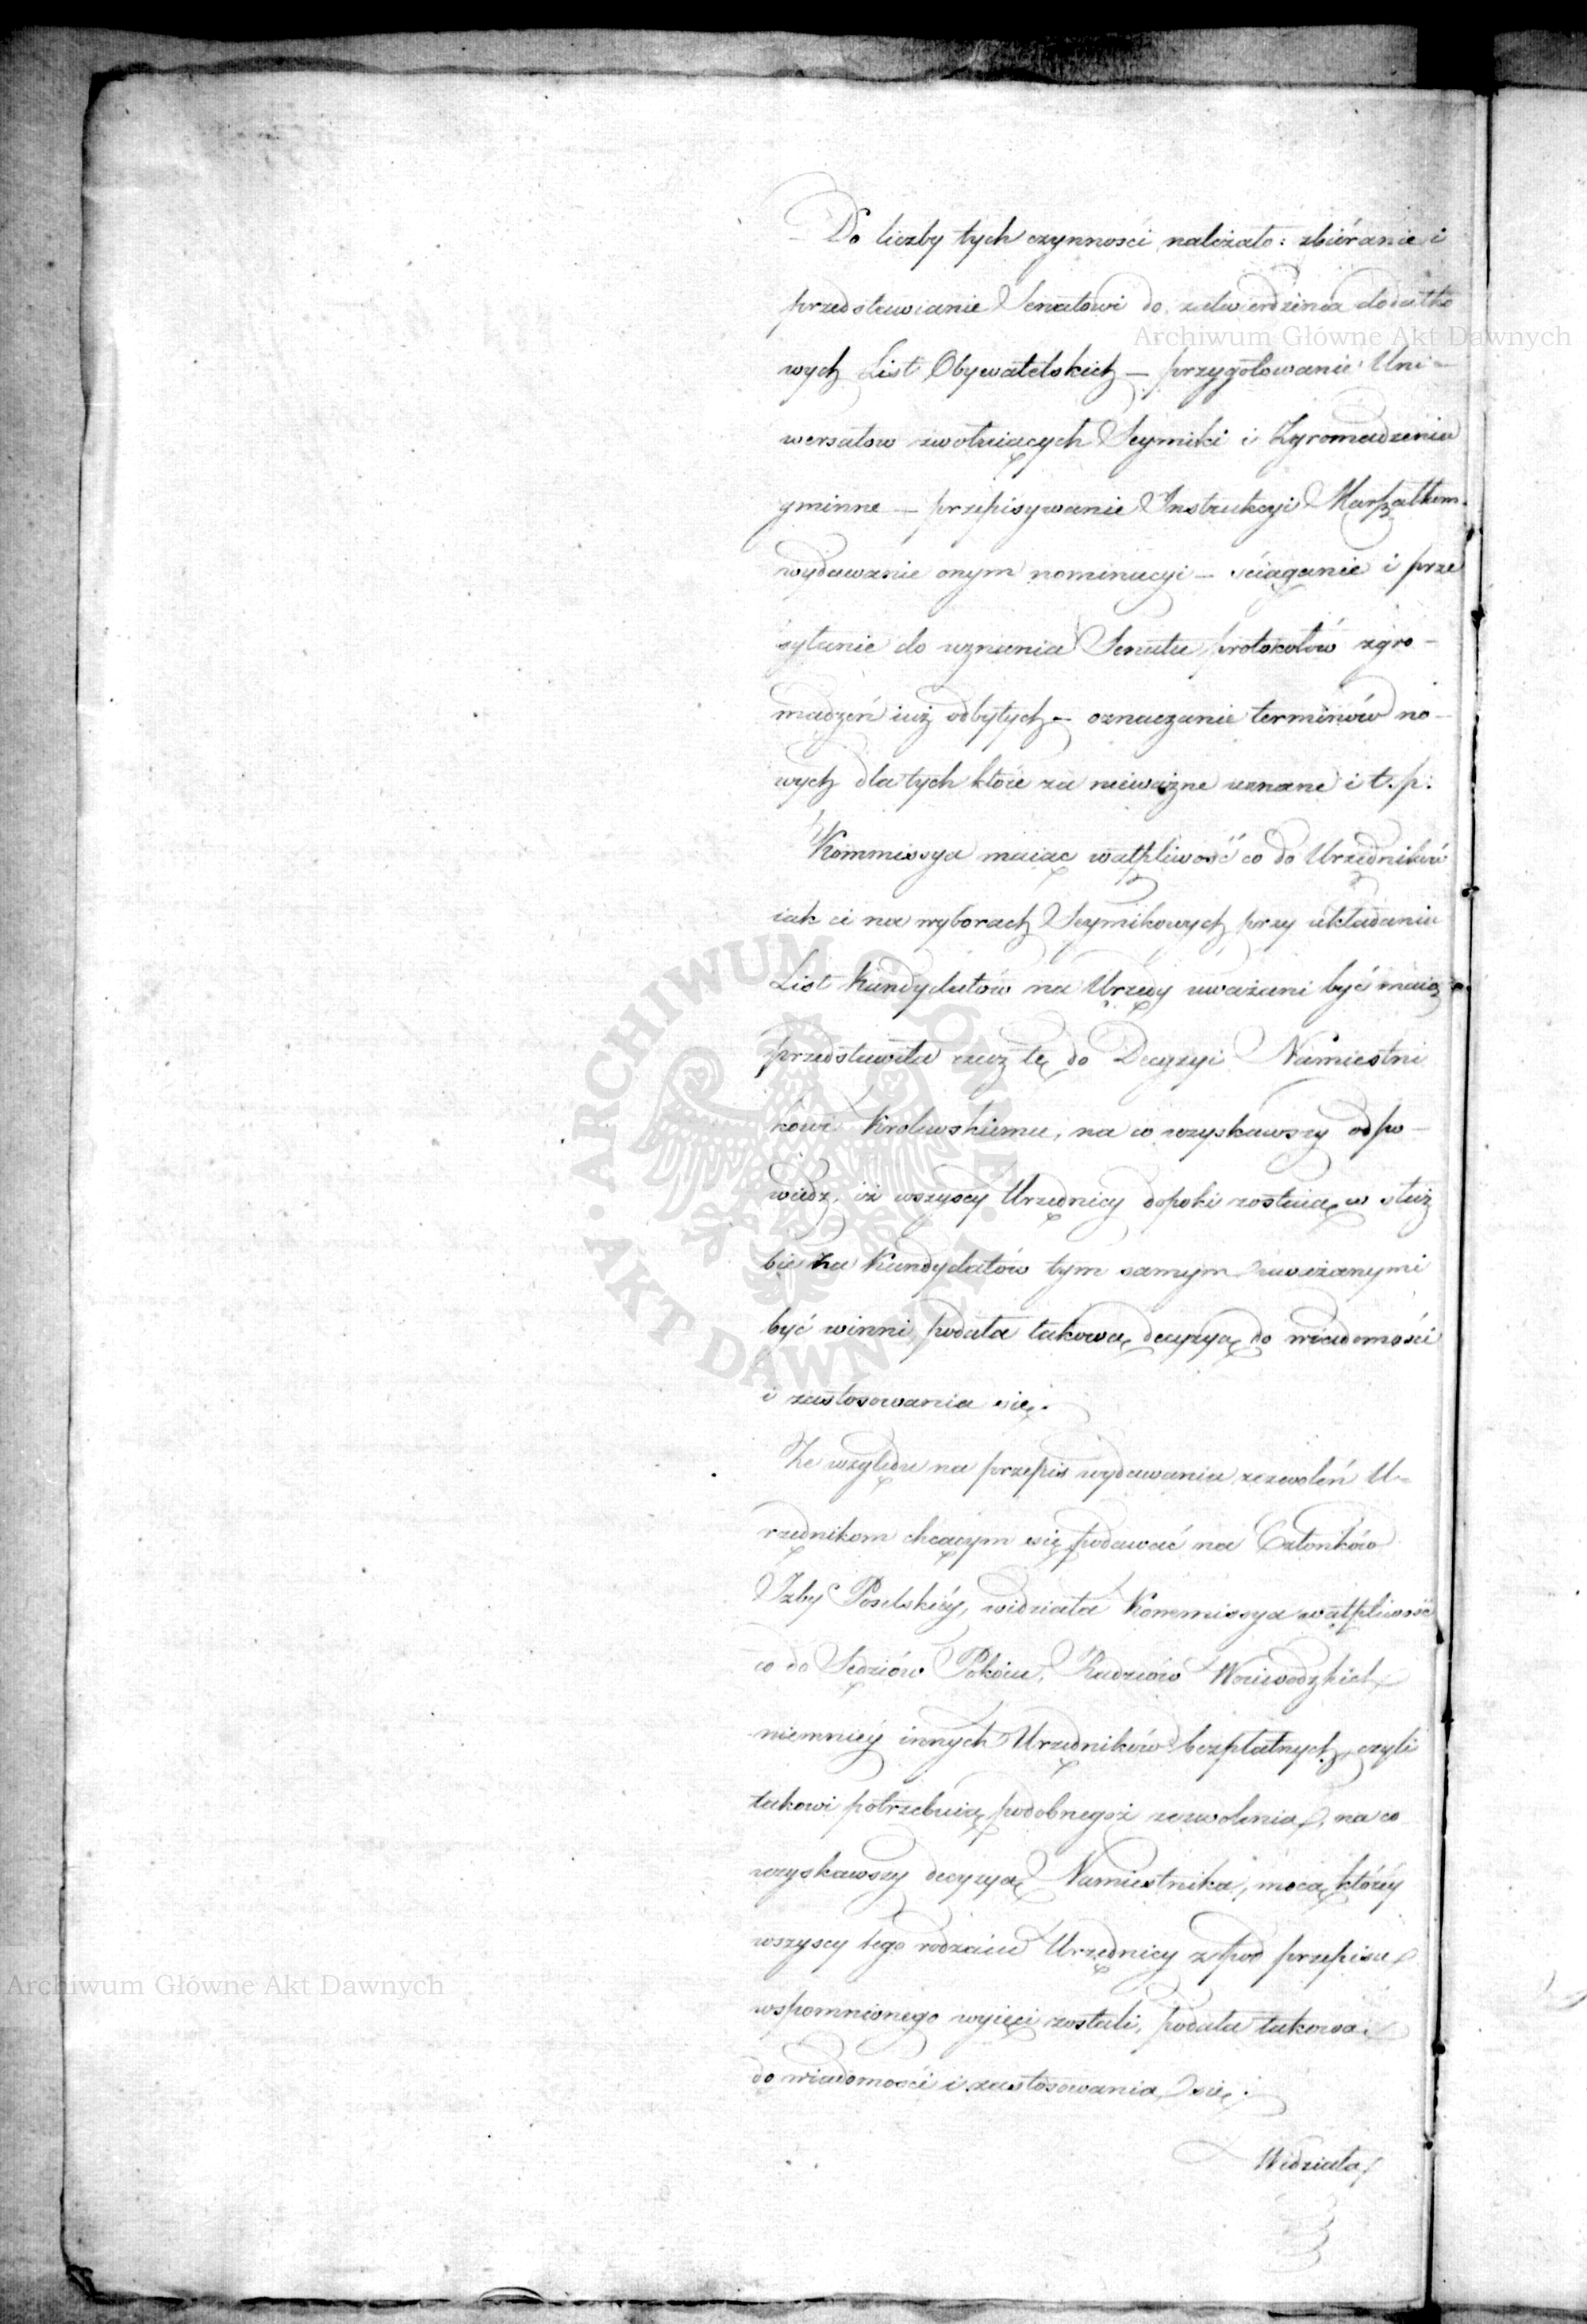 Do liczby tych czynności należało: zbiéranie i
przedstawianie Senatowi do zatwierdzenia dodatko
Archiwum Główne Akt Dawnych
wych List Obywatelskich — przygotowanie Uni-
wersałow zwołuiących Seymiki i Zgromadzenia
gminne — przepisywanie Instrukcyi Marszałkom.
wydawanie onym nominacyi — ściąganie i prze
syłanie do uznania Senatu protokołów zgro-
madzeń iuż odbytych — oznaczanie terminów no-
wych dla tych które za nieważne uznane i t. p:
Kommissya maiąc wątpliwość co do Urzędników
iak ci na wyborach Seymikowych przy układaniu
List Kandydatów na Urzędy uważani być maią
przedstawiła rzecz tę do Decyzyi Namiestni
kowi Królewskiemu, na co uzyskawszy odpo-
wiedz, iż wszyscy Urzędnicy dopoki zostaią w służ
bie za Kandydatów tym samym uważanymi
być winni, podała takową decyzyą do wiadomości
i zastosowania się.
Ze względu na przepis wydawania zezwoleń U-
rzędnikom chcącym się podawać na Członków
Izby Poselskiéy, widziała Kommissya wątpliwość
co do Sędziów Pokoiu, Radzców Woiewodzkich
niemniéy innych Urzędników bezpłatnych, czyli
takowi potrzebuią podobnegoż zezwolenia, na co
uzyskawszy decyzyą Namiestnika, mocą któréy
wszyscy tego rodzaiu Urzędnicy z pod przepisu
Archiwum Główne Akt Dawnych
wspomnionego wyięci zostali, podała takową
do wiadomości i zastosowania się.
Widziała
ARCHIWUM GŁÓWNE AKT DAWNYCH